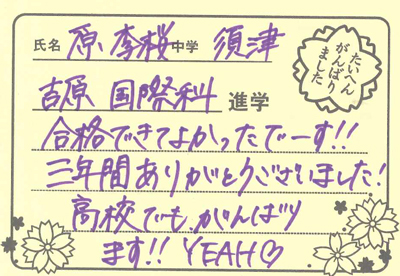 氏名 原 李桜 中学 須津
たいへん
がんばり
ました
吉原 国際科 進学
合格できてよかったでーす!!
三年間ありがとうございました!
高校でも、がんばり
ます!! YEAH♡